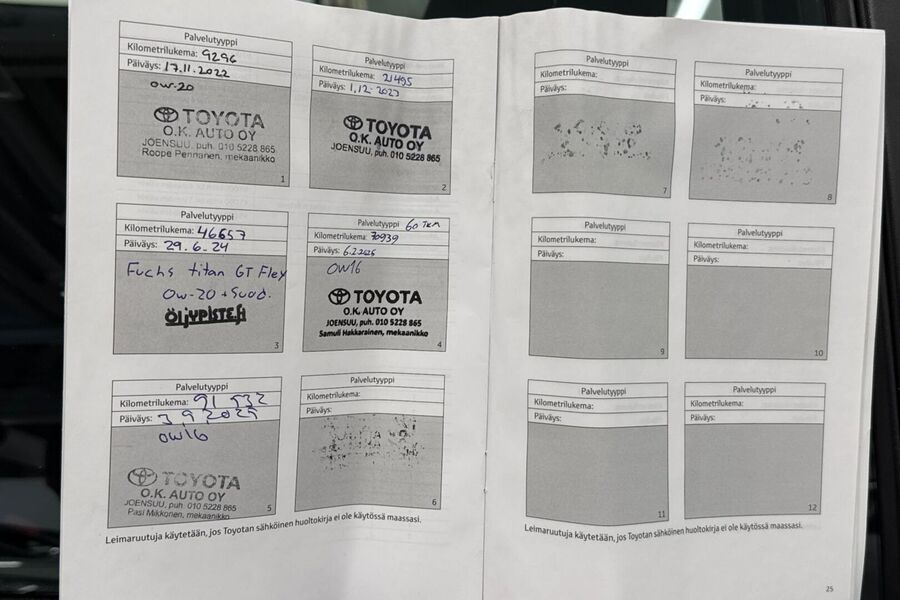 Palvelutyyppi
Kilometrilukema: 9296
Päiväys: 17.11.2022
0W-20
TOYOTA
O.K. AUTO OY
JOENSUU, puh. 010 5228 865
Roope Pennanen, mekaanikko
1
Palvelutyyppi
Kilometrilukema: 21495
Päiväys: 1.12.2023
TOYOTA
O.K. AUTO OY
JOENSUU, puh. 010 5228 865
2
Palvelutyyppi
Kilometrilukema: 46657
Päiväys: 29.6.24
Fuchs titan GT Flex
0w-20 + Suod.
ÖLJYPISTE.fi
3
Palvelutyyppi 60 TKM
Kilometrilukema: 70939
Päiväys: 6.2.2025
0W16
TOYOTA
O.K. AUTO OY
JOENSUU, puh. 010 5228 865
Samuli Hakkarainen, mekaanikko
4
Palvelutyyppi
Kilometrilukema: 91 532
Päiväys: 3.9.2025
0W16
TOYOTA
O.K. AUTO OY
JOENSUU, puh. 010 5228 865
Pasi Mikkonen, mekaanikko
5
Palvelutyyppi
Kilometrilukema:
Päiväys:
6
Leimaruutuja käytetään, jos Toyotan sähköinen huoltokirja ei ole käytössä maassasi.
Palvelutyyppi
Kilometrilukema:
Päiväys:
7
Palvelutyyppi
Kilometrilukema:
Päiväys:
8
Palvelutyyppi
Kilometrilukema:
Päiväys:
9
Palvelutyyppi
Kilometrilukema:
Päiväys:
10
Palvelutyyppi
Kilometrilukema:
Päiväys:
11
Palvelutyyppi
Kilometrilukema:
Päiväys:
12
Leimaruutuja käytetään, jos Toyotan sähköinen huoltokirja ei ole käytössä maassasi.
25